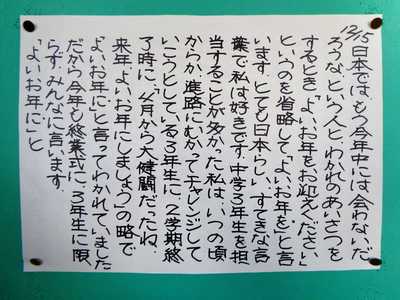 12/15
日本では、もう今年中には会わないだ
ろうな、という人と、わかれのあいさつを
するとき、「よいお年をお迎えください」
というのを省略して、「よいお年を」と言
います。とても日本らしい、すてきな言
葉で私は好きです。中学3年生を担
当することが多かった私は、いつの頃
からか、進路にむかってチャレンジして
いこうとしている3年生に、2学期終
了時に、「4月から大健闘だったね。
来年、よいお年にしましょう」の略で
「よいお年に」と言ってわかれていました。
だから今年も終業式に、3年生に限
らず、みんなに言います。
「よいお年に」と